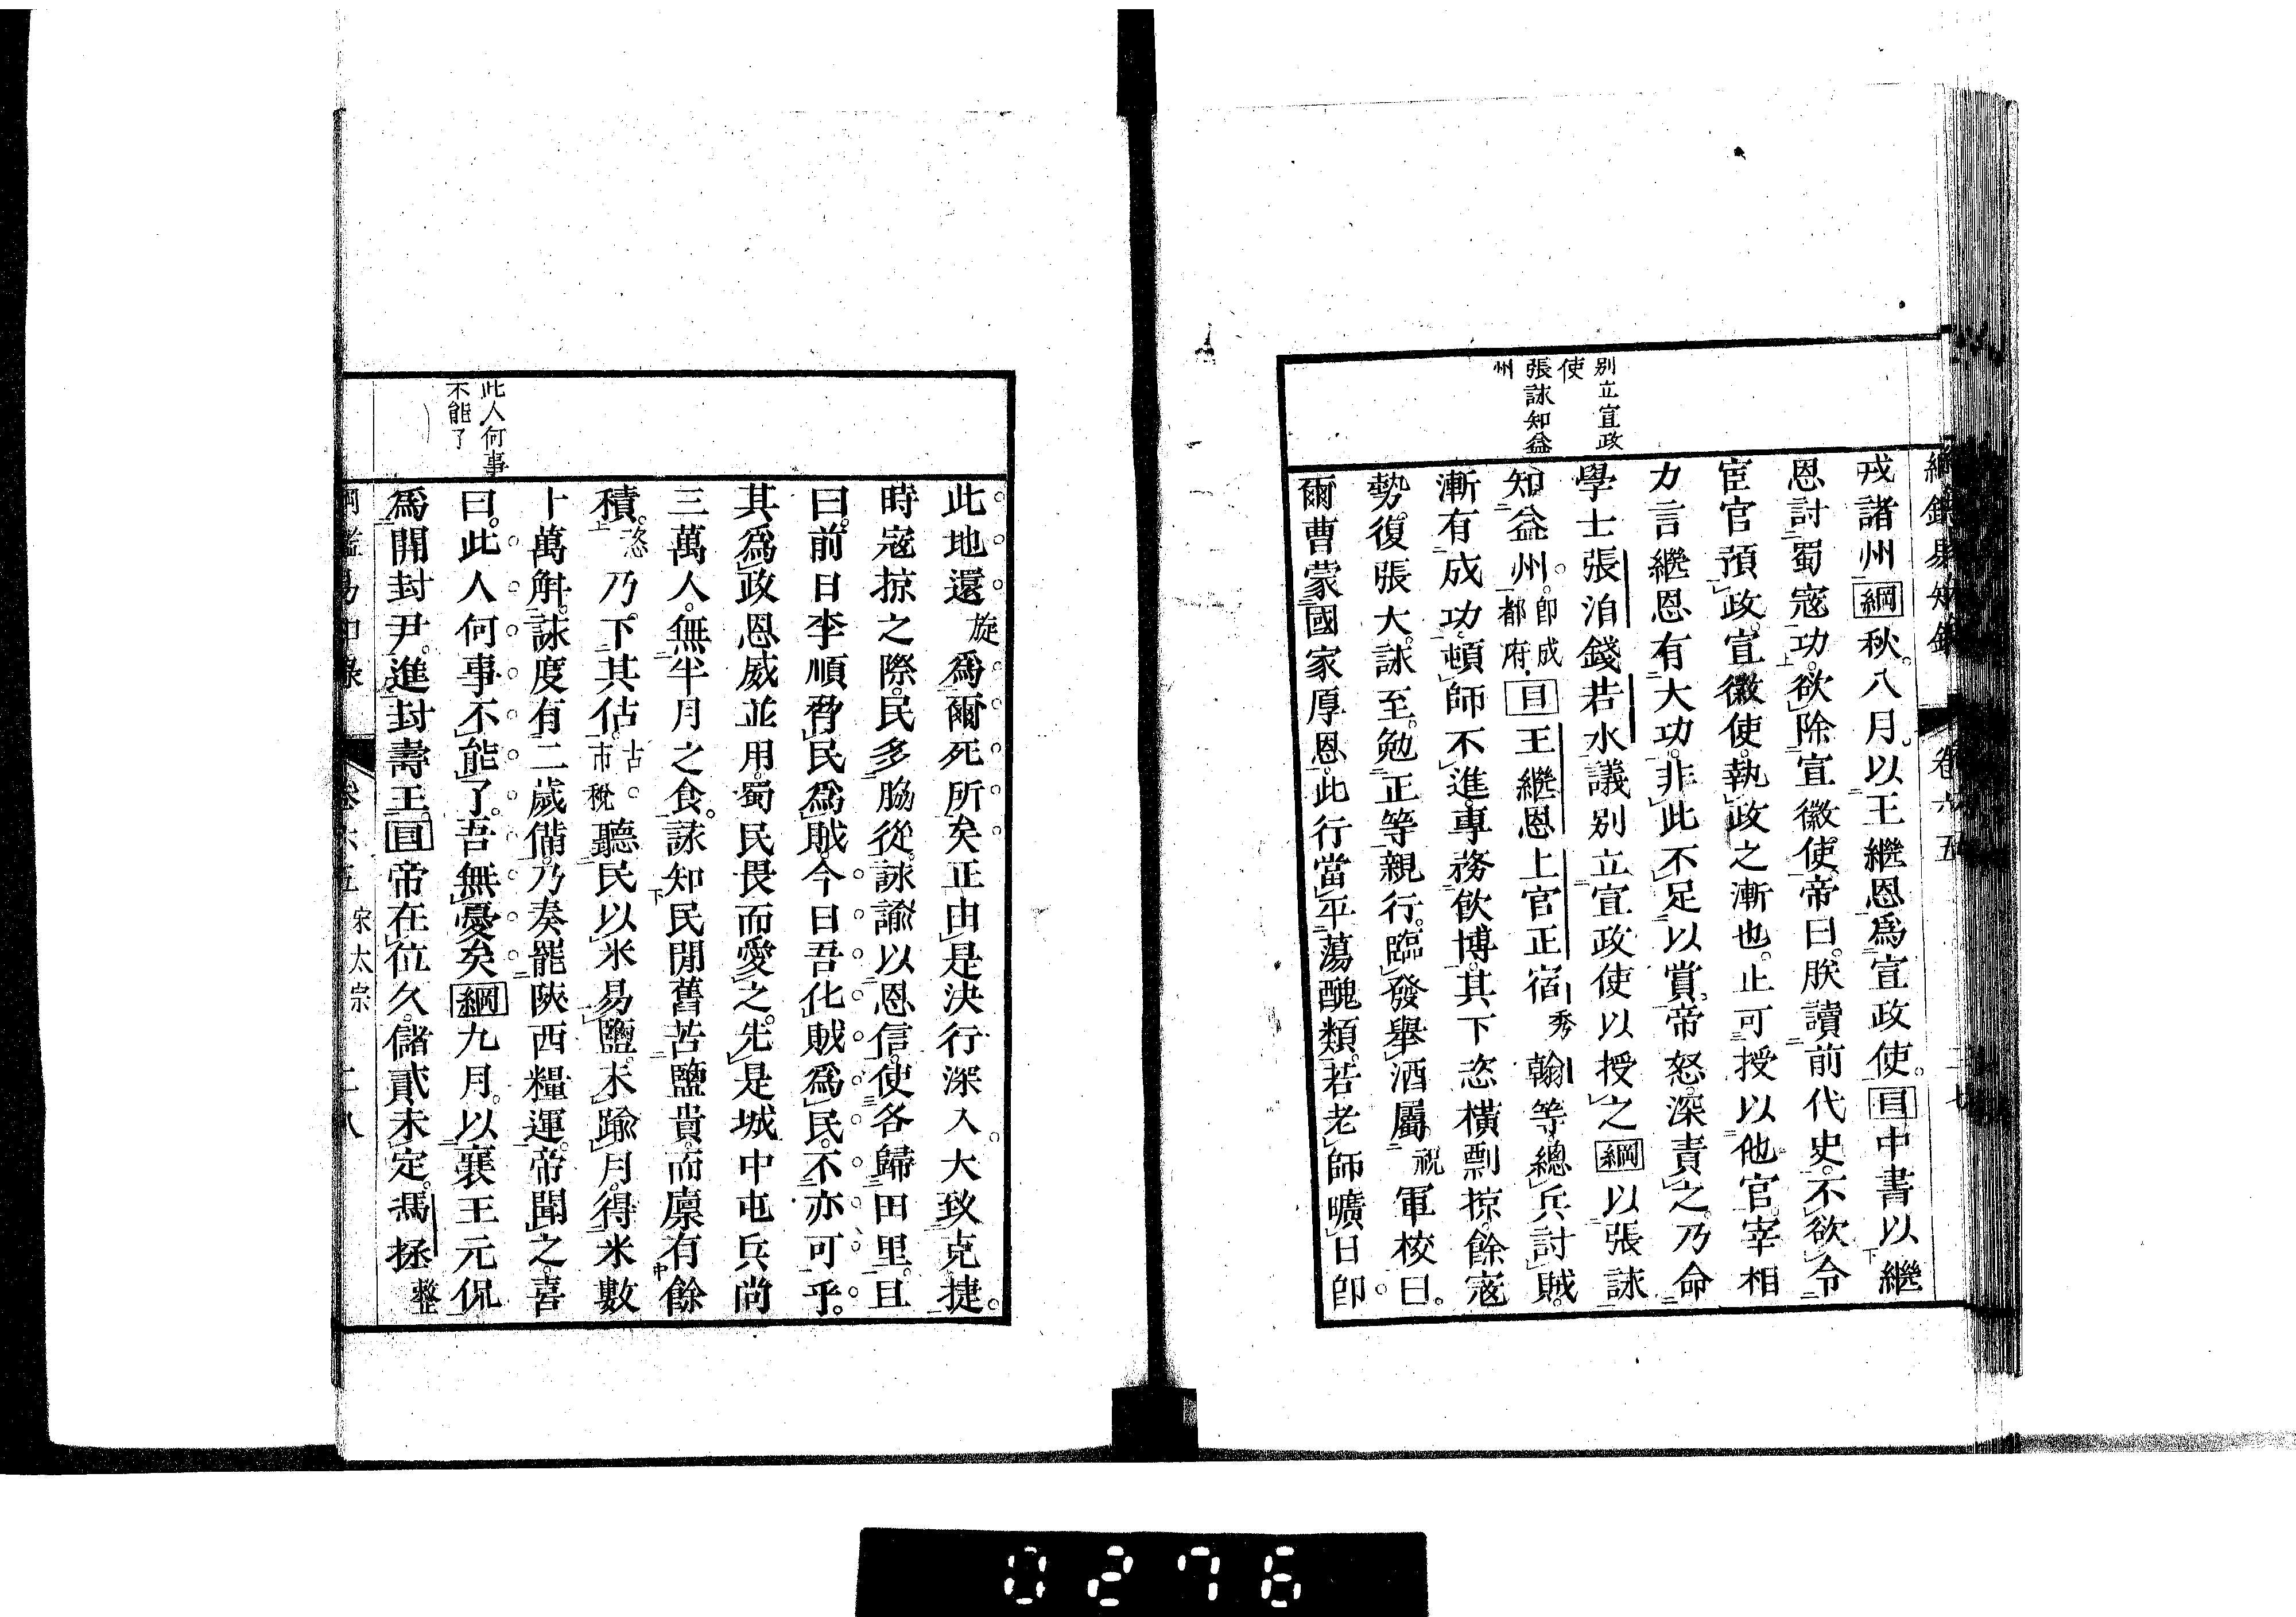 別立宣政
使
張詠知益
州
戎諸州綱秋八月以王繼恩爲宣政使目中書以繼
恩討蜀寇功欲除宣徽使帝曰朕讀前代史不欲令
宦官預政宣徽使執政之漸也止可授以他官宰相
力言繼恩有大功非此不足以賞帝怒深責之乃命
學士張洎錢若水議別立宣政使以授之綱以張詠
知益州卽成都府目王繼恩上官正宿秀翰等總兵討賊
漸有成功頓師不進專務飮博其下恣橫剽掠餘寇
勢復張大詠至勉正等親行臨發舉酒屬祝軍校曰
爾曹蒙國家厚恩此行當平蕩醜類若老師曠日卽
此人何事
不能了
此地還旋爲爾死所矣正由是決行深入大致克捷
時寇掠之際民多脇從詠諭以恩信使各歸田里且
曰前日李順脅民爲賊今日吾化賊爲民不亦可乎
其爲政恩威並用蜀民畏而愛之先是城中屯兵尚
三萬人無半月之食詠知民閒舊苦鹽貴而廩有餘
積恣乃下其估古市稅聽民以米易鹽未踰月得米數
十萬斛詠度有二歲備乃奏罷陝西糧運帝聞之喜
曰此人何事不能了吾無憂矣綱九月以襄王元侃
爲開封尹進封壽王目帝在位久儲貳未定馮拯整
卷六五 宋太宗 二八
0276